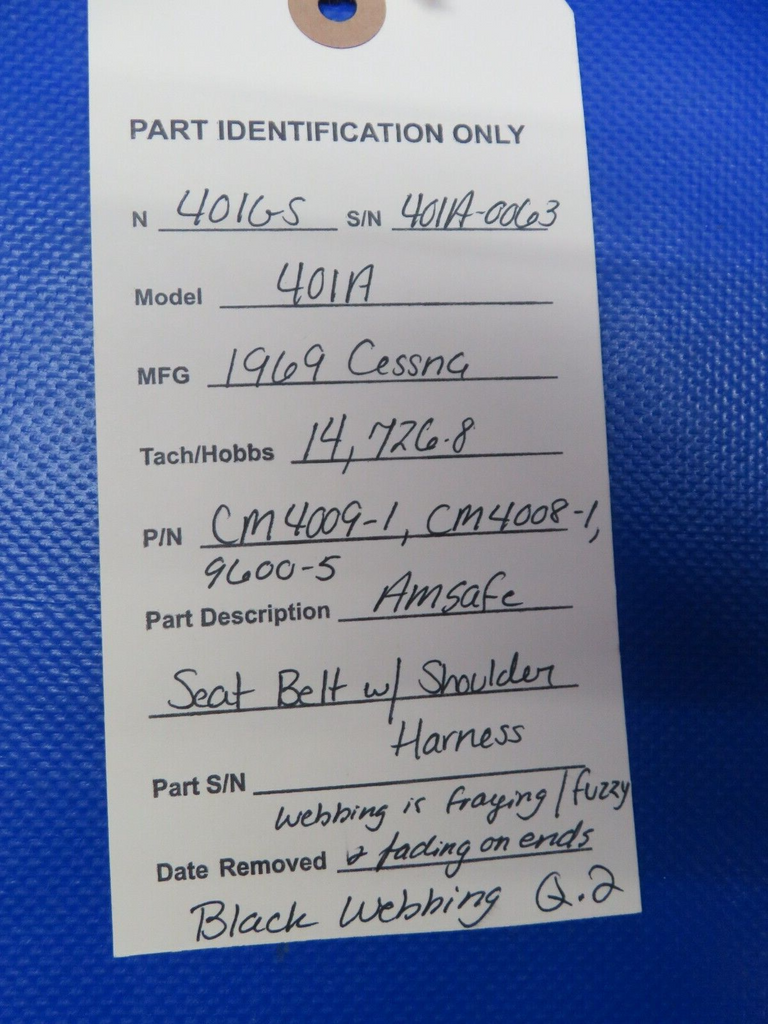 PART IDENTIFICATION ONLY
N 401GS S/N 401A-0063
Model 401A
MFG 1969 Cessna
Tach/Hobbs 14,726.8
P/N CM4009-1, CM4008-1,
9600-5
Part Description Amsafe
Seat Belt w/ Shoulder
Harness
Part S/N
webbing is fraying/fuzzy
Date Removed & fading on ends
Black Webbing Q.2